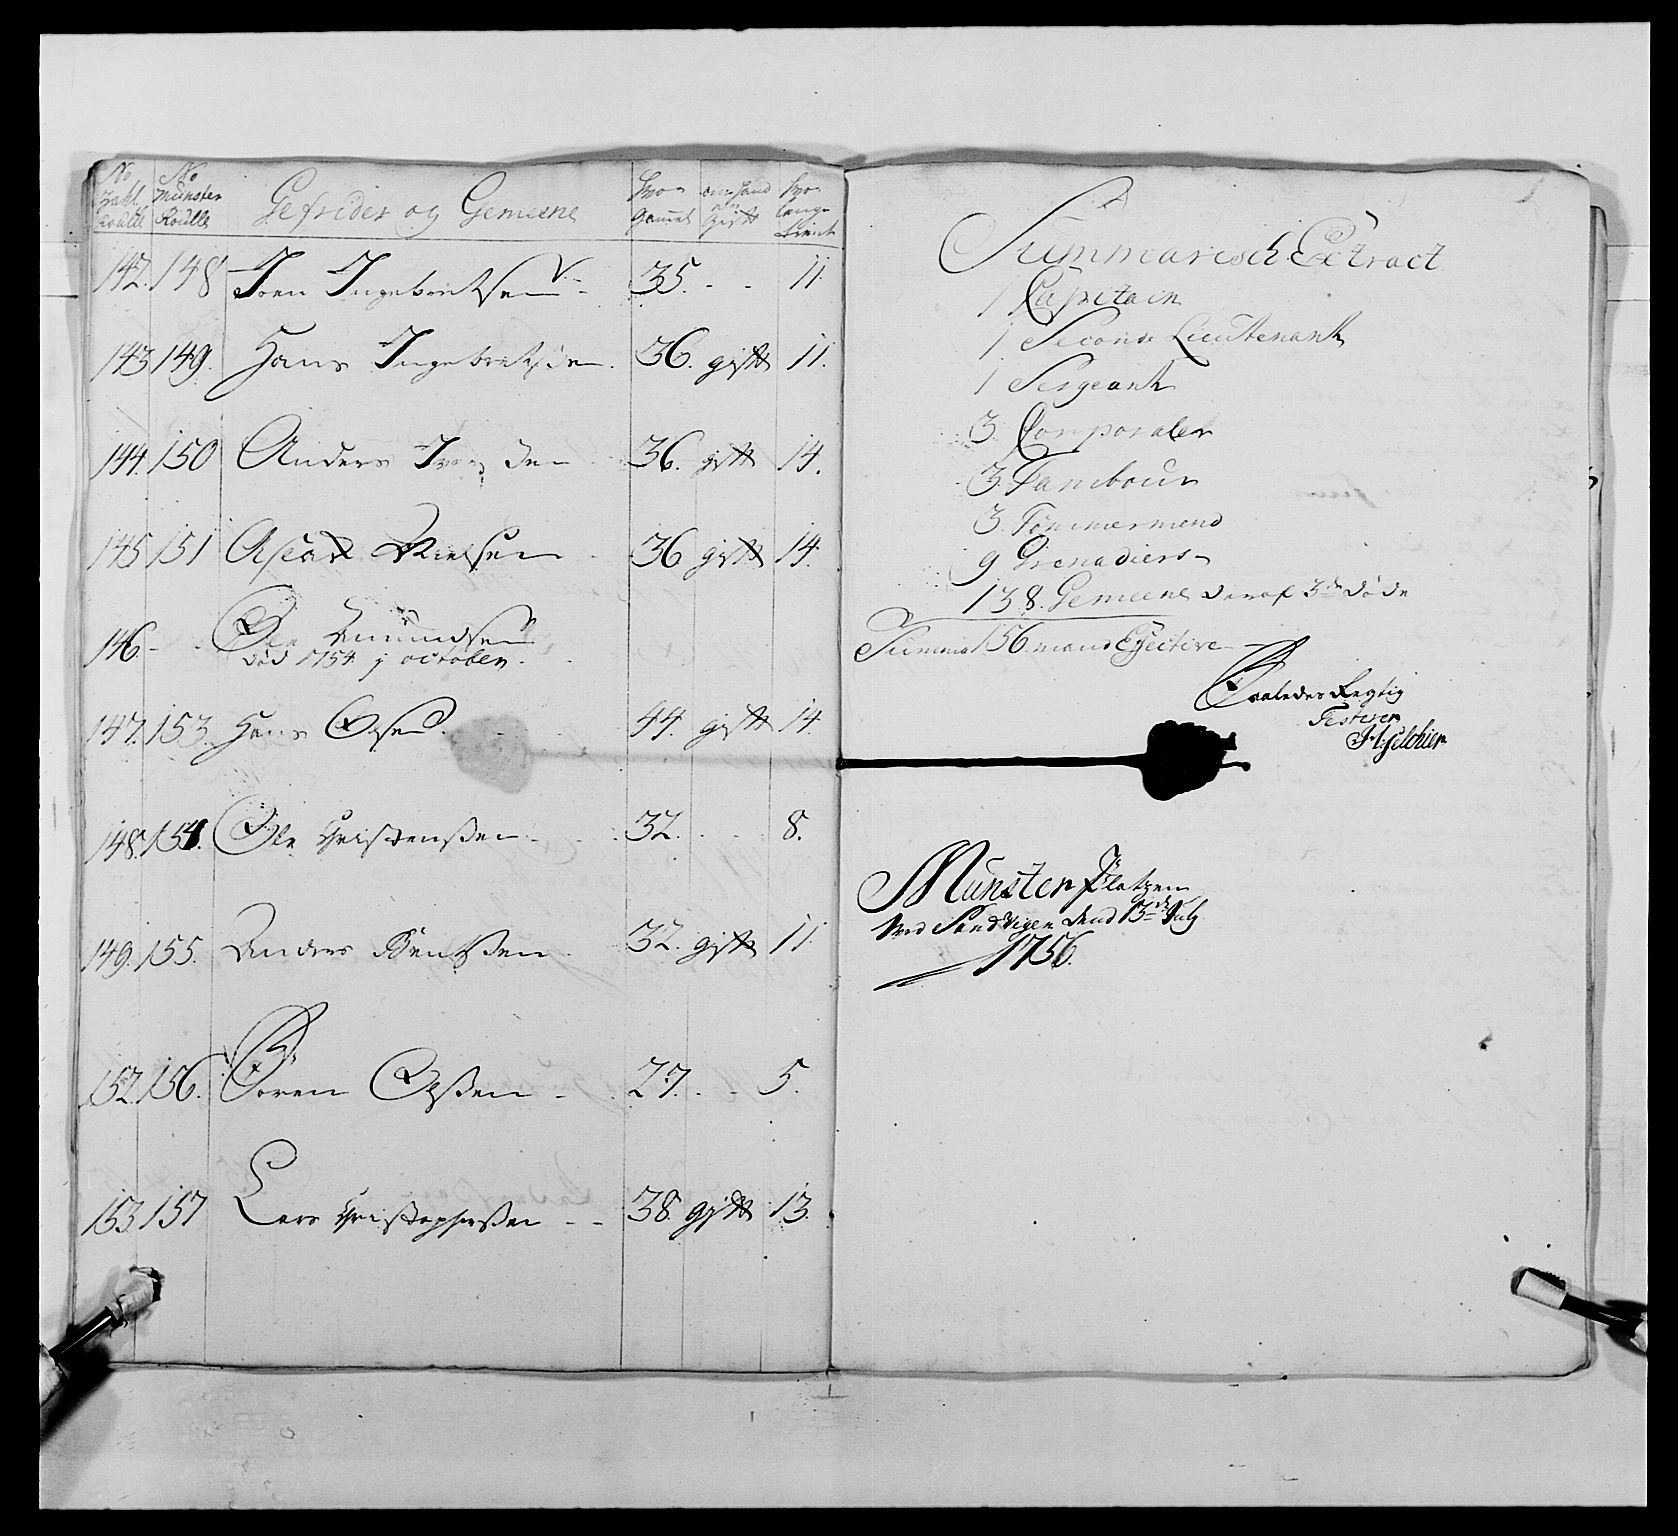 No Zahl Roulle | No Münster Roulle | Gefreider og Gemeene | hvor Gammel | om hand er Gift | hvor lenge tient
142. 148 Iven Ingebretsen 35. - - 11.
143 149. Hans Ingebretsen. 36. gift 11.
144. 150 Anders Iversen 36. gift 14.
145 151 Aslak Nielsen 36 gift 14.
146. - Ole Amundsen
død 1754 j october.
147. 153. Hans Olsen. 44. gift 14.
148. 154. Ole Christenßen 32. - - 8.
149. 155. Anders Bentßen. 32. gift 11.
152. 156. Søren Olßen - 27. - - 5.
153. 157 Lars Christophersßen - - 38. gift 13.
Summarisch Extract
1 Capitain
1 Second Lieutenant
1 Sergeant
3. Corporaler
3. Tambour
3. Tömmermend
9 Grenadiers
138. Gemeene deraf 3de døde
Summa 156. mand Effective
Saaledes Rigtig
Testerer
H: Melchier
Münster Platzen
Ved Sandvigen dend 13de July
1756.